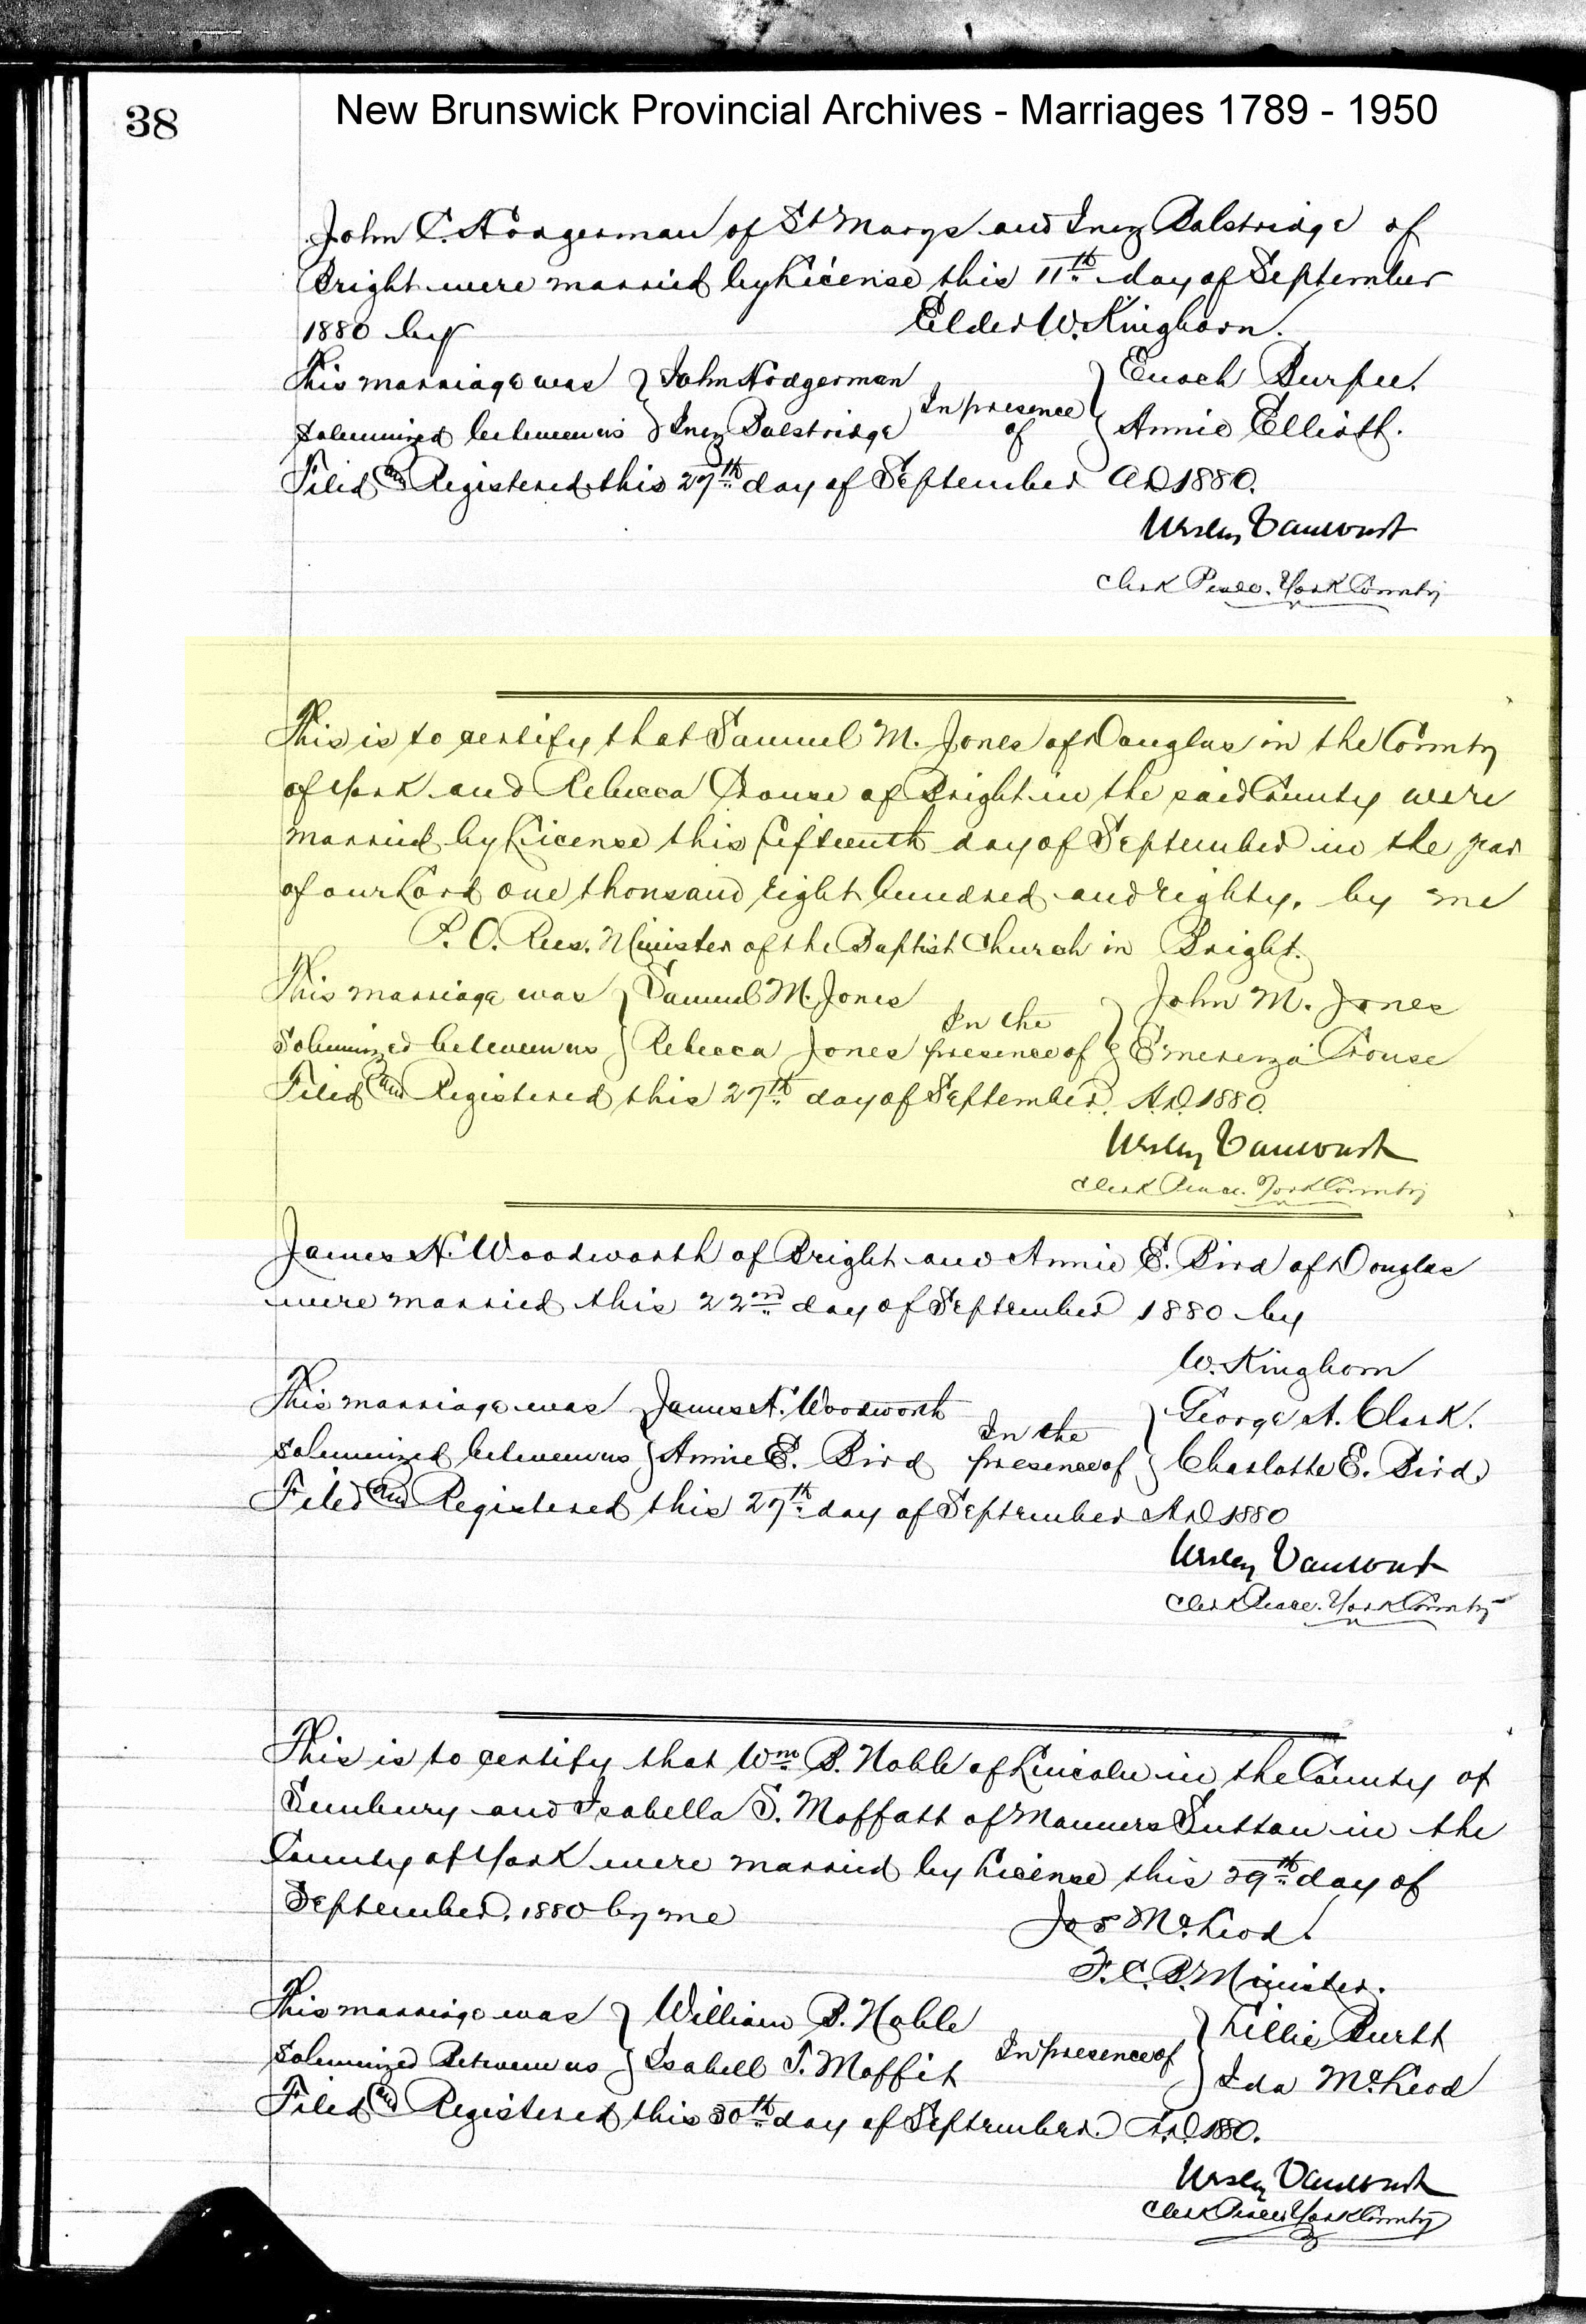 38
New Brunswick Provincial Archives - Marriages 1789 - 1950
John C. Hodgerman of St Marys and Inez Balstridge of
Bright were married by License this 11th day of September
1880 by Elder W. Kinghorn.
This marriage was } John Hodgerman } Enoch Burpee.
solemnized between us } Inez Balstridge In presence of } Annie Elliott.
Filed and Registered this 27th day of September AD 1880.
Wesley Vanwart
Clerk Peace. York County
This is to certify that Samuel M. Jones of Douglas in the County
of York and Rebecca Crouse of Bright in the said County were
married by License this fifteenth day of September in the year
of our Lord one thousand eight hundred and eighty. by me
P. O. Rees. Minister of the Baptist Church in Bright.
This marriage was } Samuel M. Jones In the } John M. Jones
Solemnized between us } Rebecca Jones presence of } Emerenza Crouse
Filed and Registered this 27th day of September. A.D. 1880.
Wesley Vanwart
Clerk Peace. York County
James H. Woodworth of Bright and Annie E. Bird of Douglas
were married this 22nd day of September 1880 by
W. Kinghorn
This marriage was } James H. Woodworth In the } George A. Clark.
solemnized between us } Annie E. Bird presence of } Charlotte E. Bird
Filed and Registered this 27th day of September AD 1880
Wesley Vanwart
Clerk Peace. York County
This is to certify that Wm B. Noble of Lincoln in the County of
Sunbury and Isabella S. Moffatt of Manners Sutton in the
County of York were married by License this 29th day of
September. 1880 by me Jos McLeod.
F. C. B. Minister.
This marriage was } William B. Noble } Lillie Burtt
solemnized Between us } Isabell S. Moffit In presence of } Ida McLeod
Filed and Registered this 30th day of September. A.D. 1880.
Wesley Vanwart
Clerk Peace York County